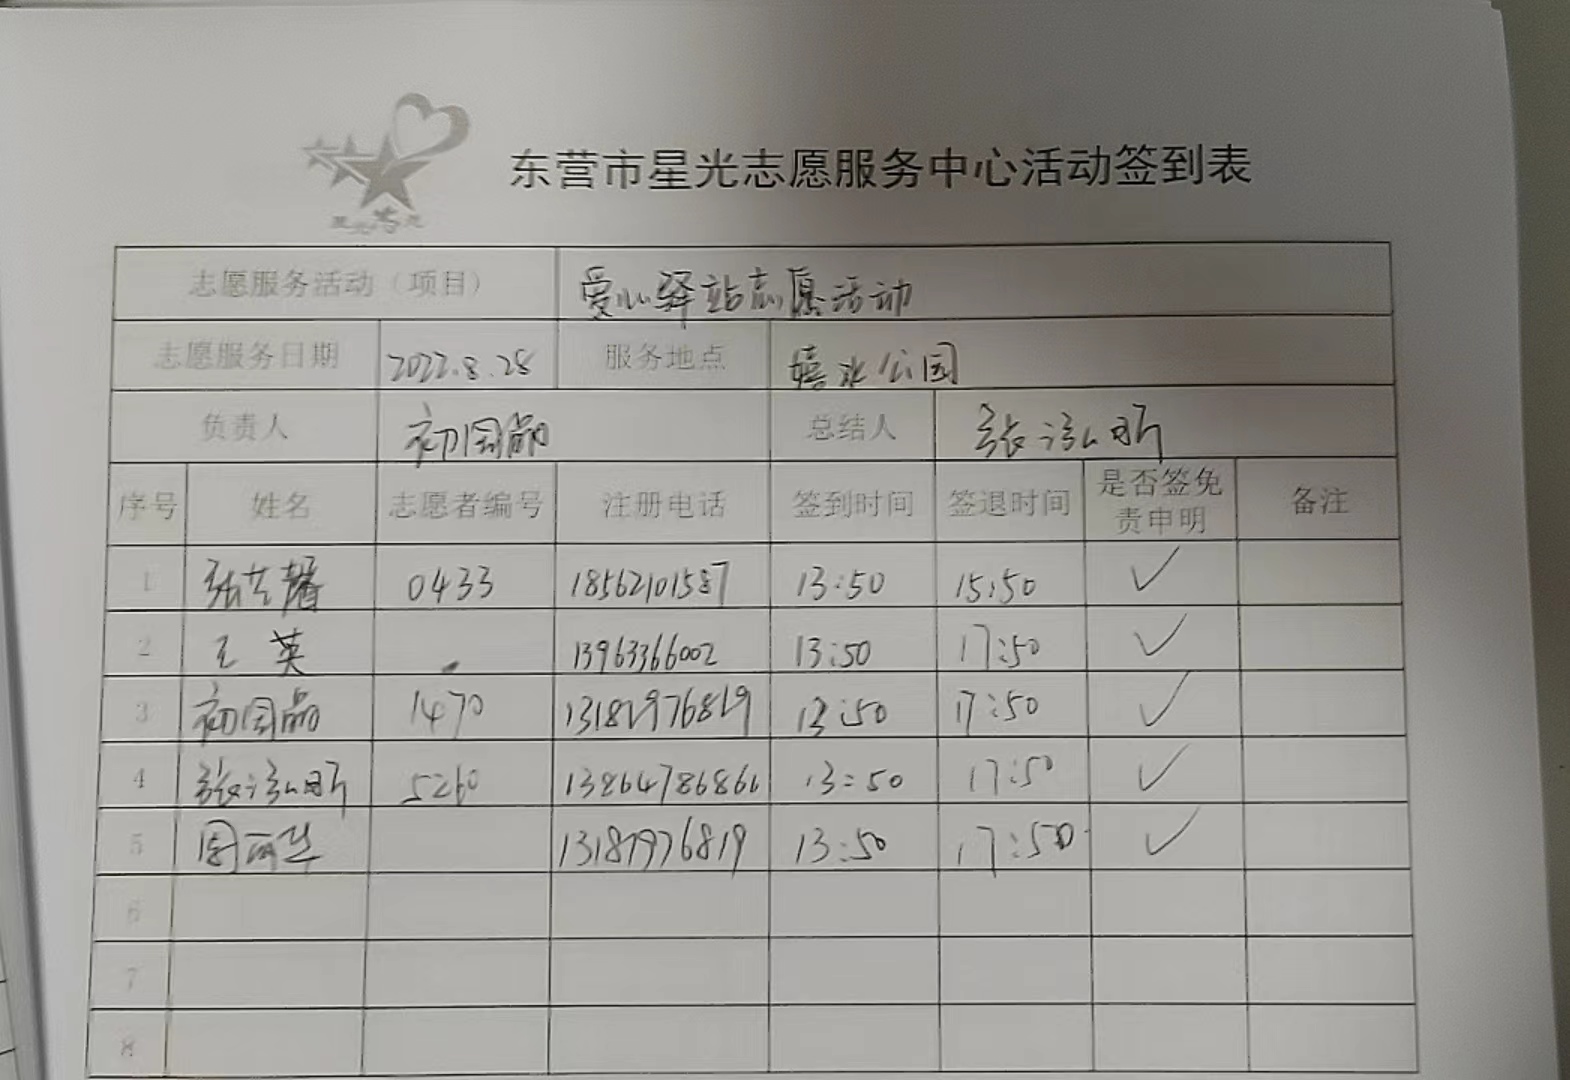 东营市星光志愿服务中心活动签到表
志愿服务活动（项目） 爱心驿站志愿活动
志愿服务日期 2022.8.28 服务地点 嬉水公园
负责人 初国 总结人 张泓昕
序号 姓名 志愿者编号 注册电话 签到时间 签退时间 是否签免责申明 备注
1 张艺馨 0433 18562101587 13:50 15:50 ✓
2 王英 13963366002 13:50 17:50 ✓
3 初国 1470 13181976819 13:50 17:50 ✓
4 张泓昕 5260 13864786866 13:50 17:50 ✓
5 周丽华 13181976819 13:50 17:50 ✓
6
7
8